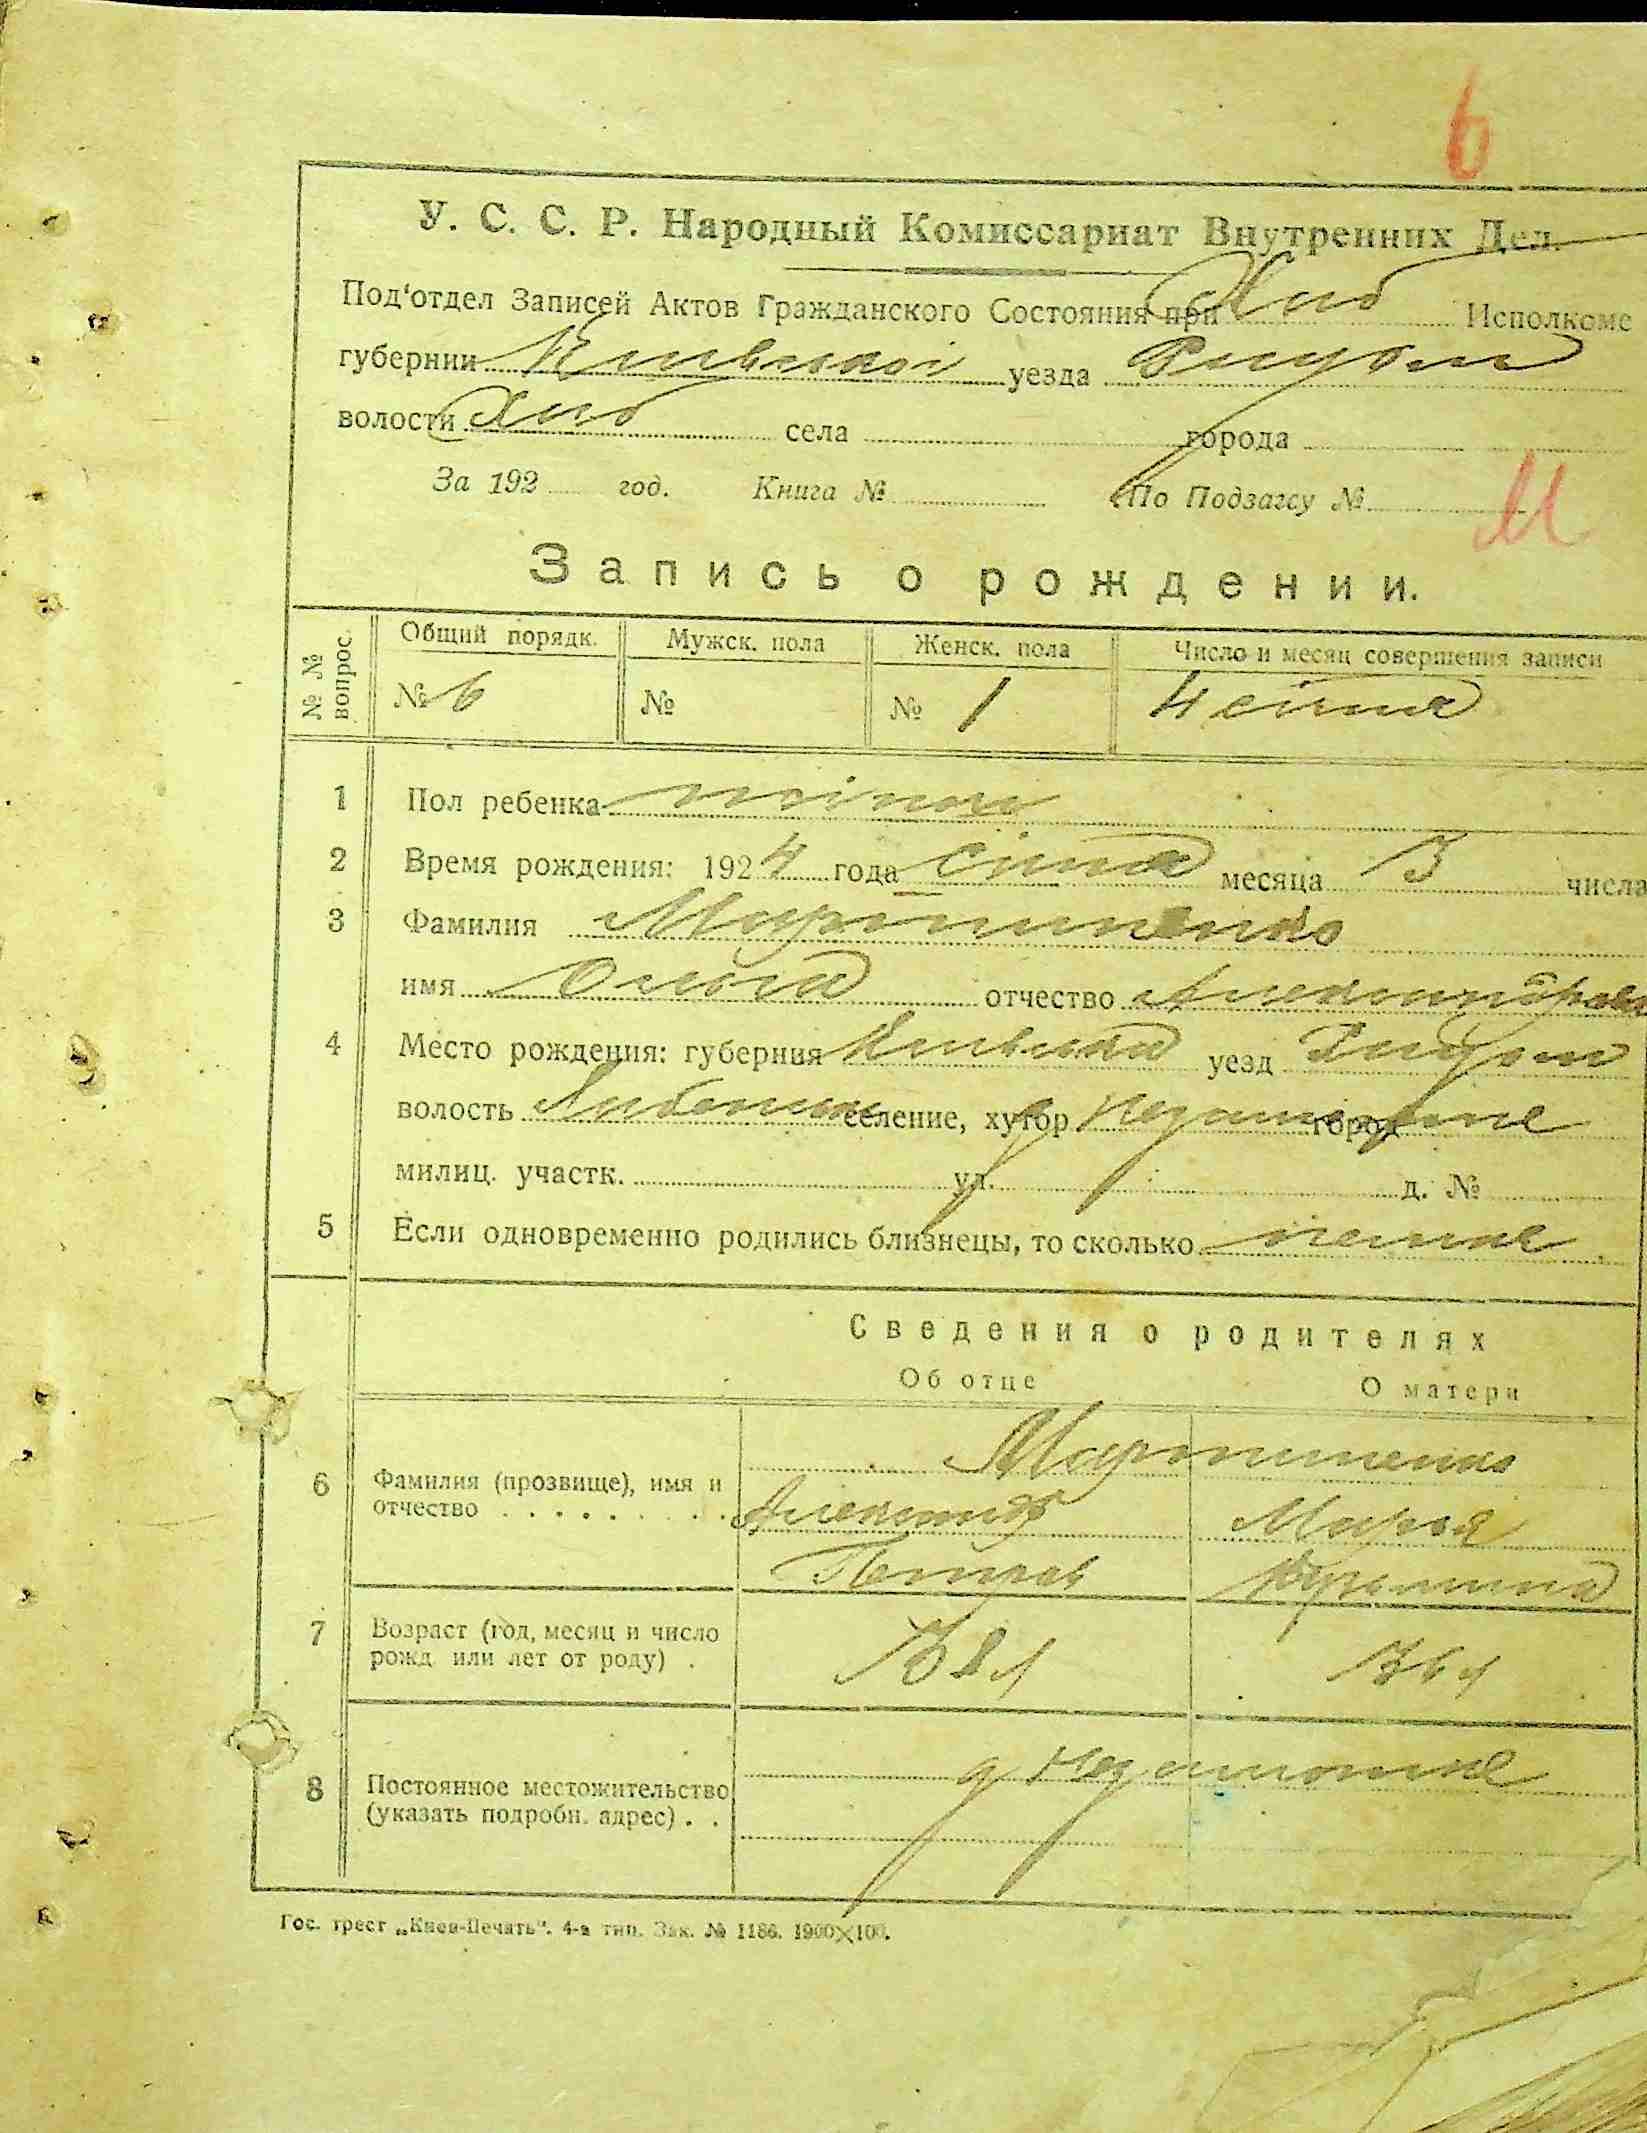 6
У. С. С. Р. Народный Комиссариат Внутренних Дел.
Под'отдел Записей Актов Гражданского Состояния при Хаб Исполкоме
губернии Київської уезда
волости Хаб села города
За 192 год. Книга № По Подзагсу №
М
Запись о рождении.
№ № вопрос. Общий порядк. Мужск. пола Женск. пола Число и месяц совершения записи
№ 6 № № 1 4 січня
1 Пол ребенка жіноч
2 Время рождения: 1924 года січня месяца 3 числа
3 Фамилия Мартиненко
имя Ольга отчество Александровна
4 Место рождения: губерния Київська уезд
волость Хабенськ селение, хутор город
милиц. участк. ул. д. №
5 Если одновременно родились близнецы, то сколько немає
Сведения о родителях
Об отце О матери
Мартиненко
6 Фамилия (прозвище), имя и отчество . . . . . . . . . Александр Мария
Петров
7 Возраст (год, месяц и число рожд. или лет от роду) . 38 л 36 л
8 Постоянное местожительство (указать подробн. адрес) . .
Гос. трест „Киев-Печать". 4-я тип. Зак. № 1186. 1900×100.